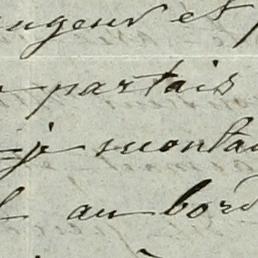 angeur et
partais
=je montai
au bord